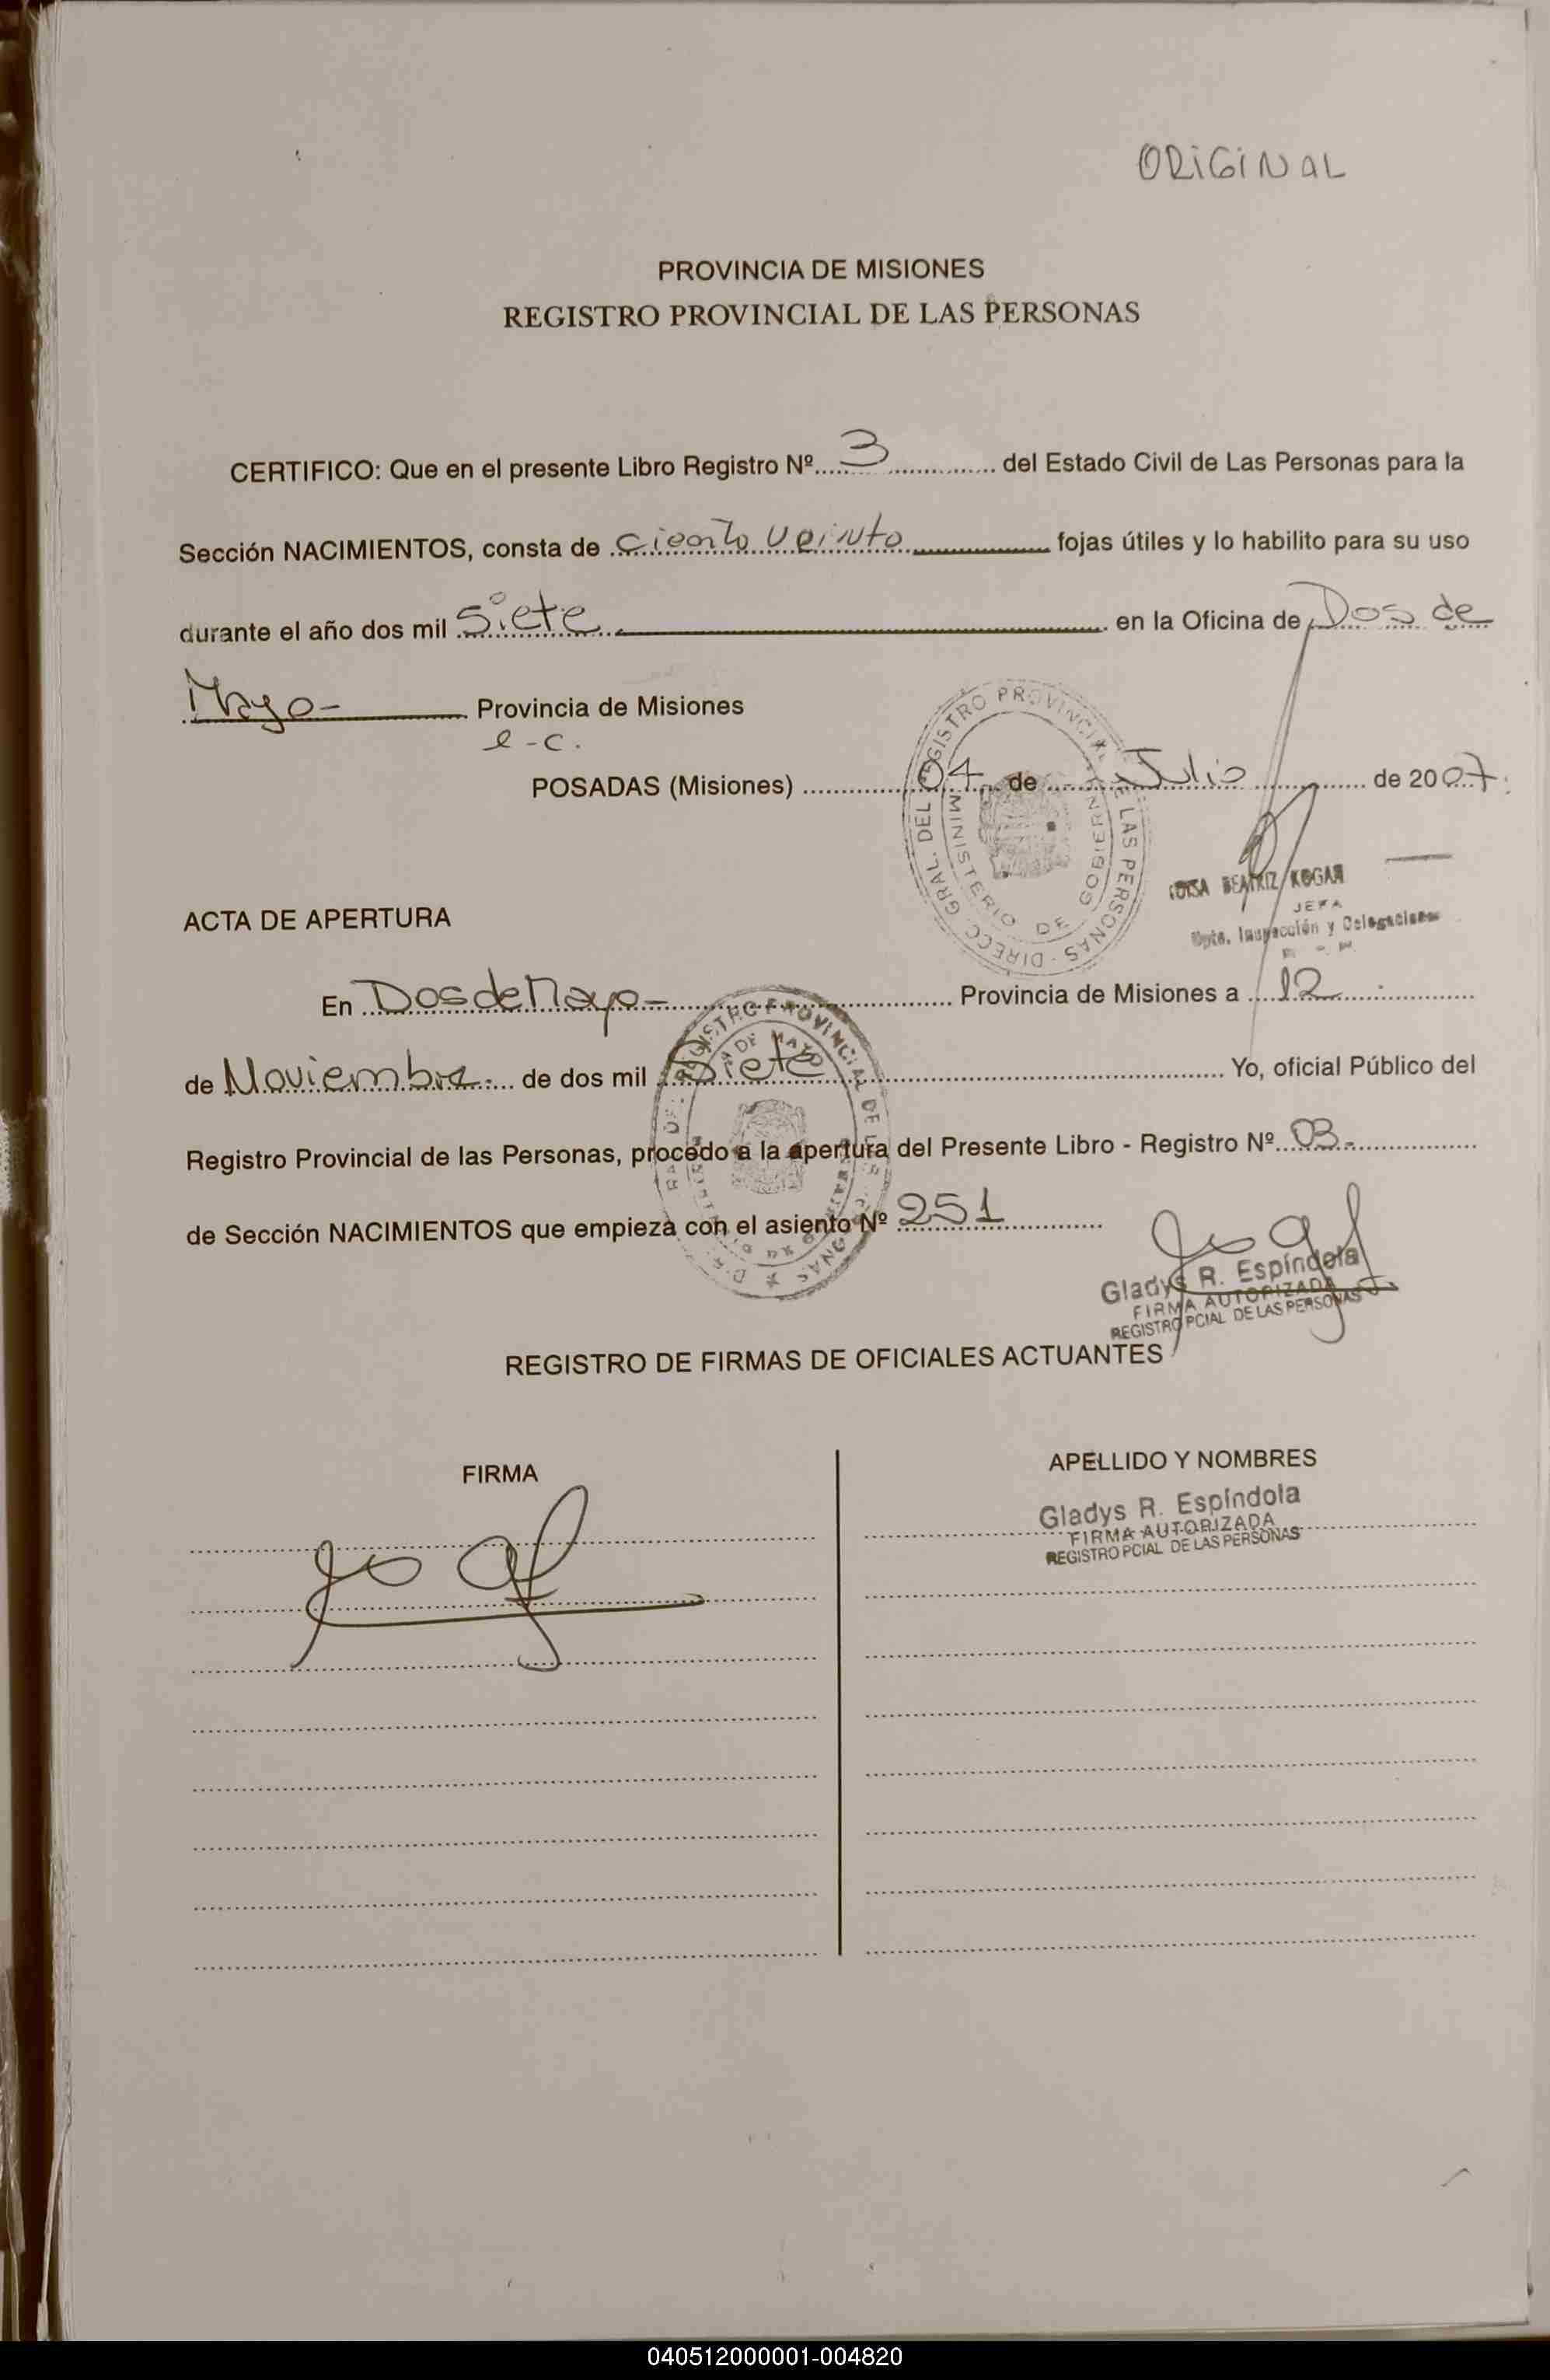 ORIGINAL
PROVINCIA DE MISIONES
REGISTRO PROVINCIAL DE LAS PERSONAS
CERTIFICO: Que en el presente Libro Registro Nº 3 del Estado Civil de Las Personas para la
Sección NACIMIENTOS, consta de ciento veinte fojas útiles y lo habilito para su uso
durante el año dos mil siete en la Oficina de Dos de
Mayo- Provincia de Misiones
e-c.
POSADAS (Misiones) 04 de Julio de 2007.
DIRECC. GRAL. DEL REGISTRO PROVINCIAL DE LAS PERSONAS
MINISTERIO DE GOBIERNO
BEATRIZ KOGAN
JEFA
Dpto. Inspección y Delegaciones
ACTA DE APERTURA
En Dos de Mayo- Provincia de Misiones a 12
de Noviembre de dos mil Siete Yo, oficial Público del
Registro Provincial de las Personas, procedo a la apertura del Presente Libro - Registro Nº 03.
de Sección NACIMIENTOS que empieza con el asiento Nº 251
Gladys R. Espíndola
FIRMA AUTORIZADA
REGISTRO PCIAL DE LAS PERSONAS
REGISTRO DE FIRMAS DE OFICIALES ACTUANTES
FIRMA APELLIDO Y NOMBRES
Gladys R. Espíndola
FIRMA AUTORIZADA
REGISTRO PCIAL DE LAS PERSONAS
040512000001-004820